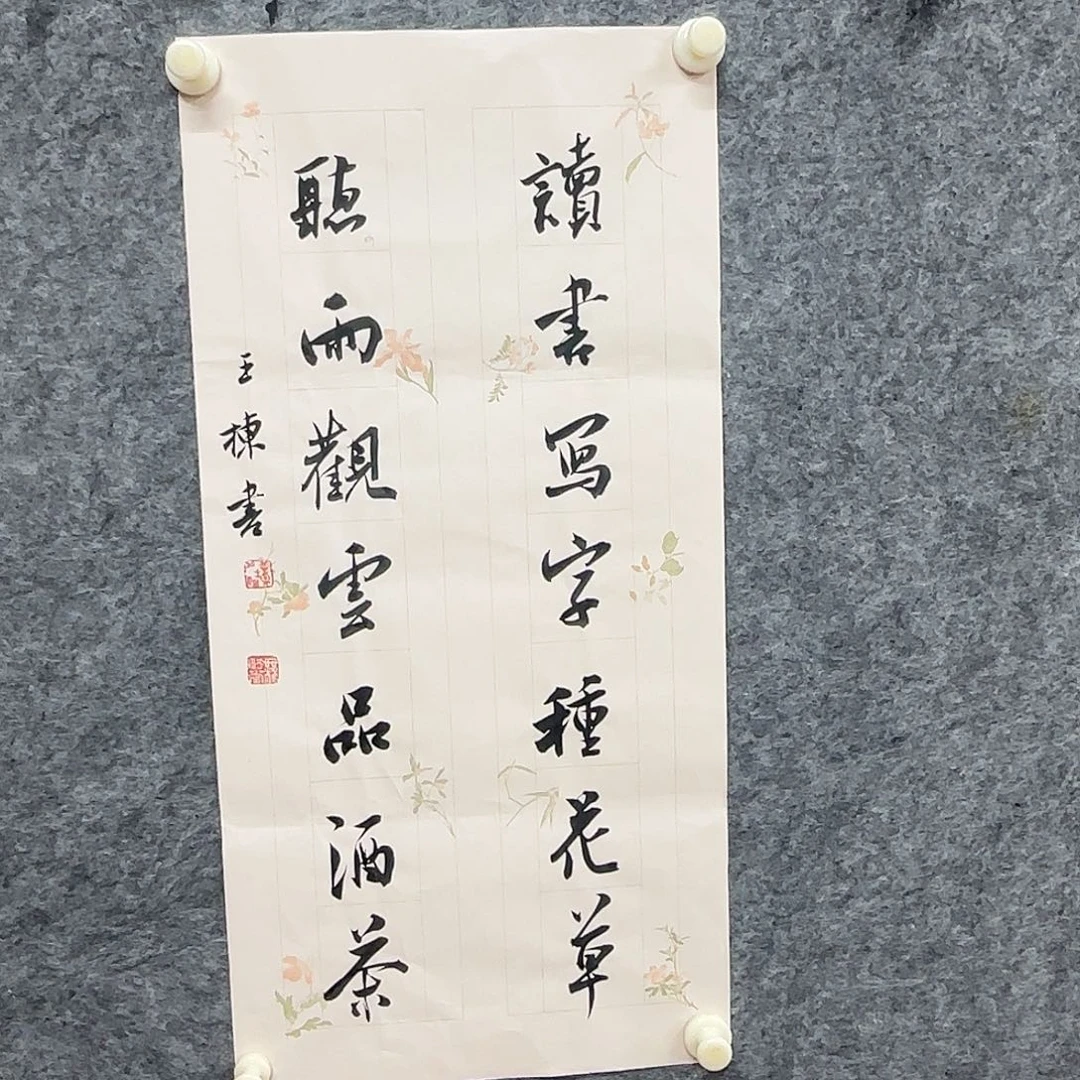 讀書写字種花草
聽雨觀雲品酒茶
王棟書